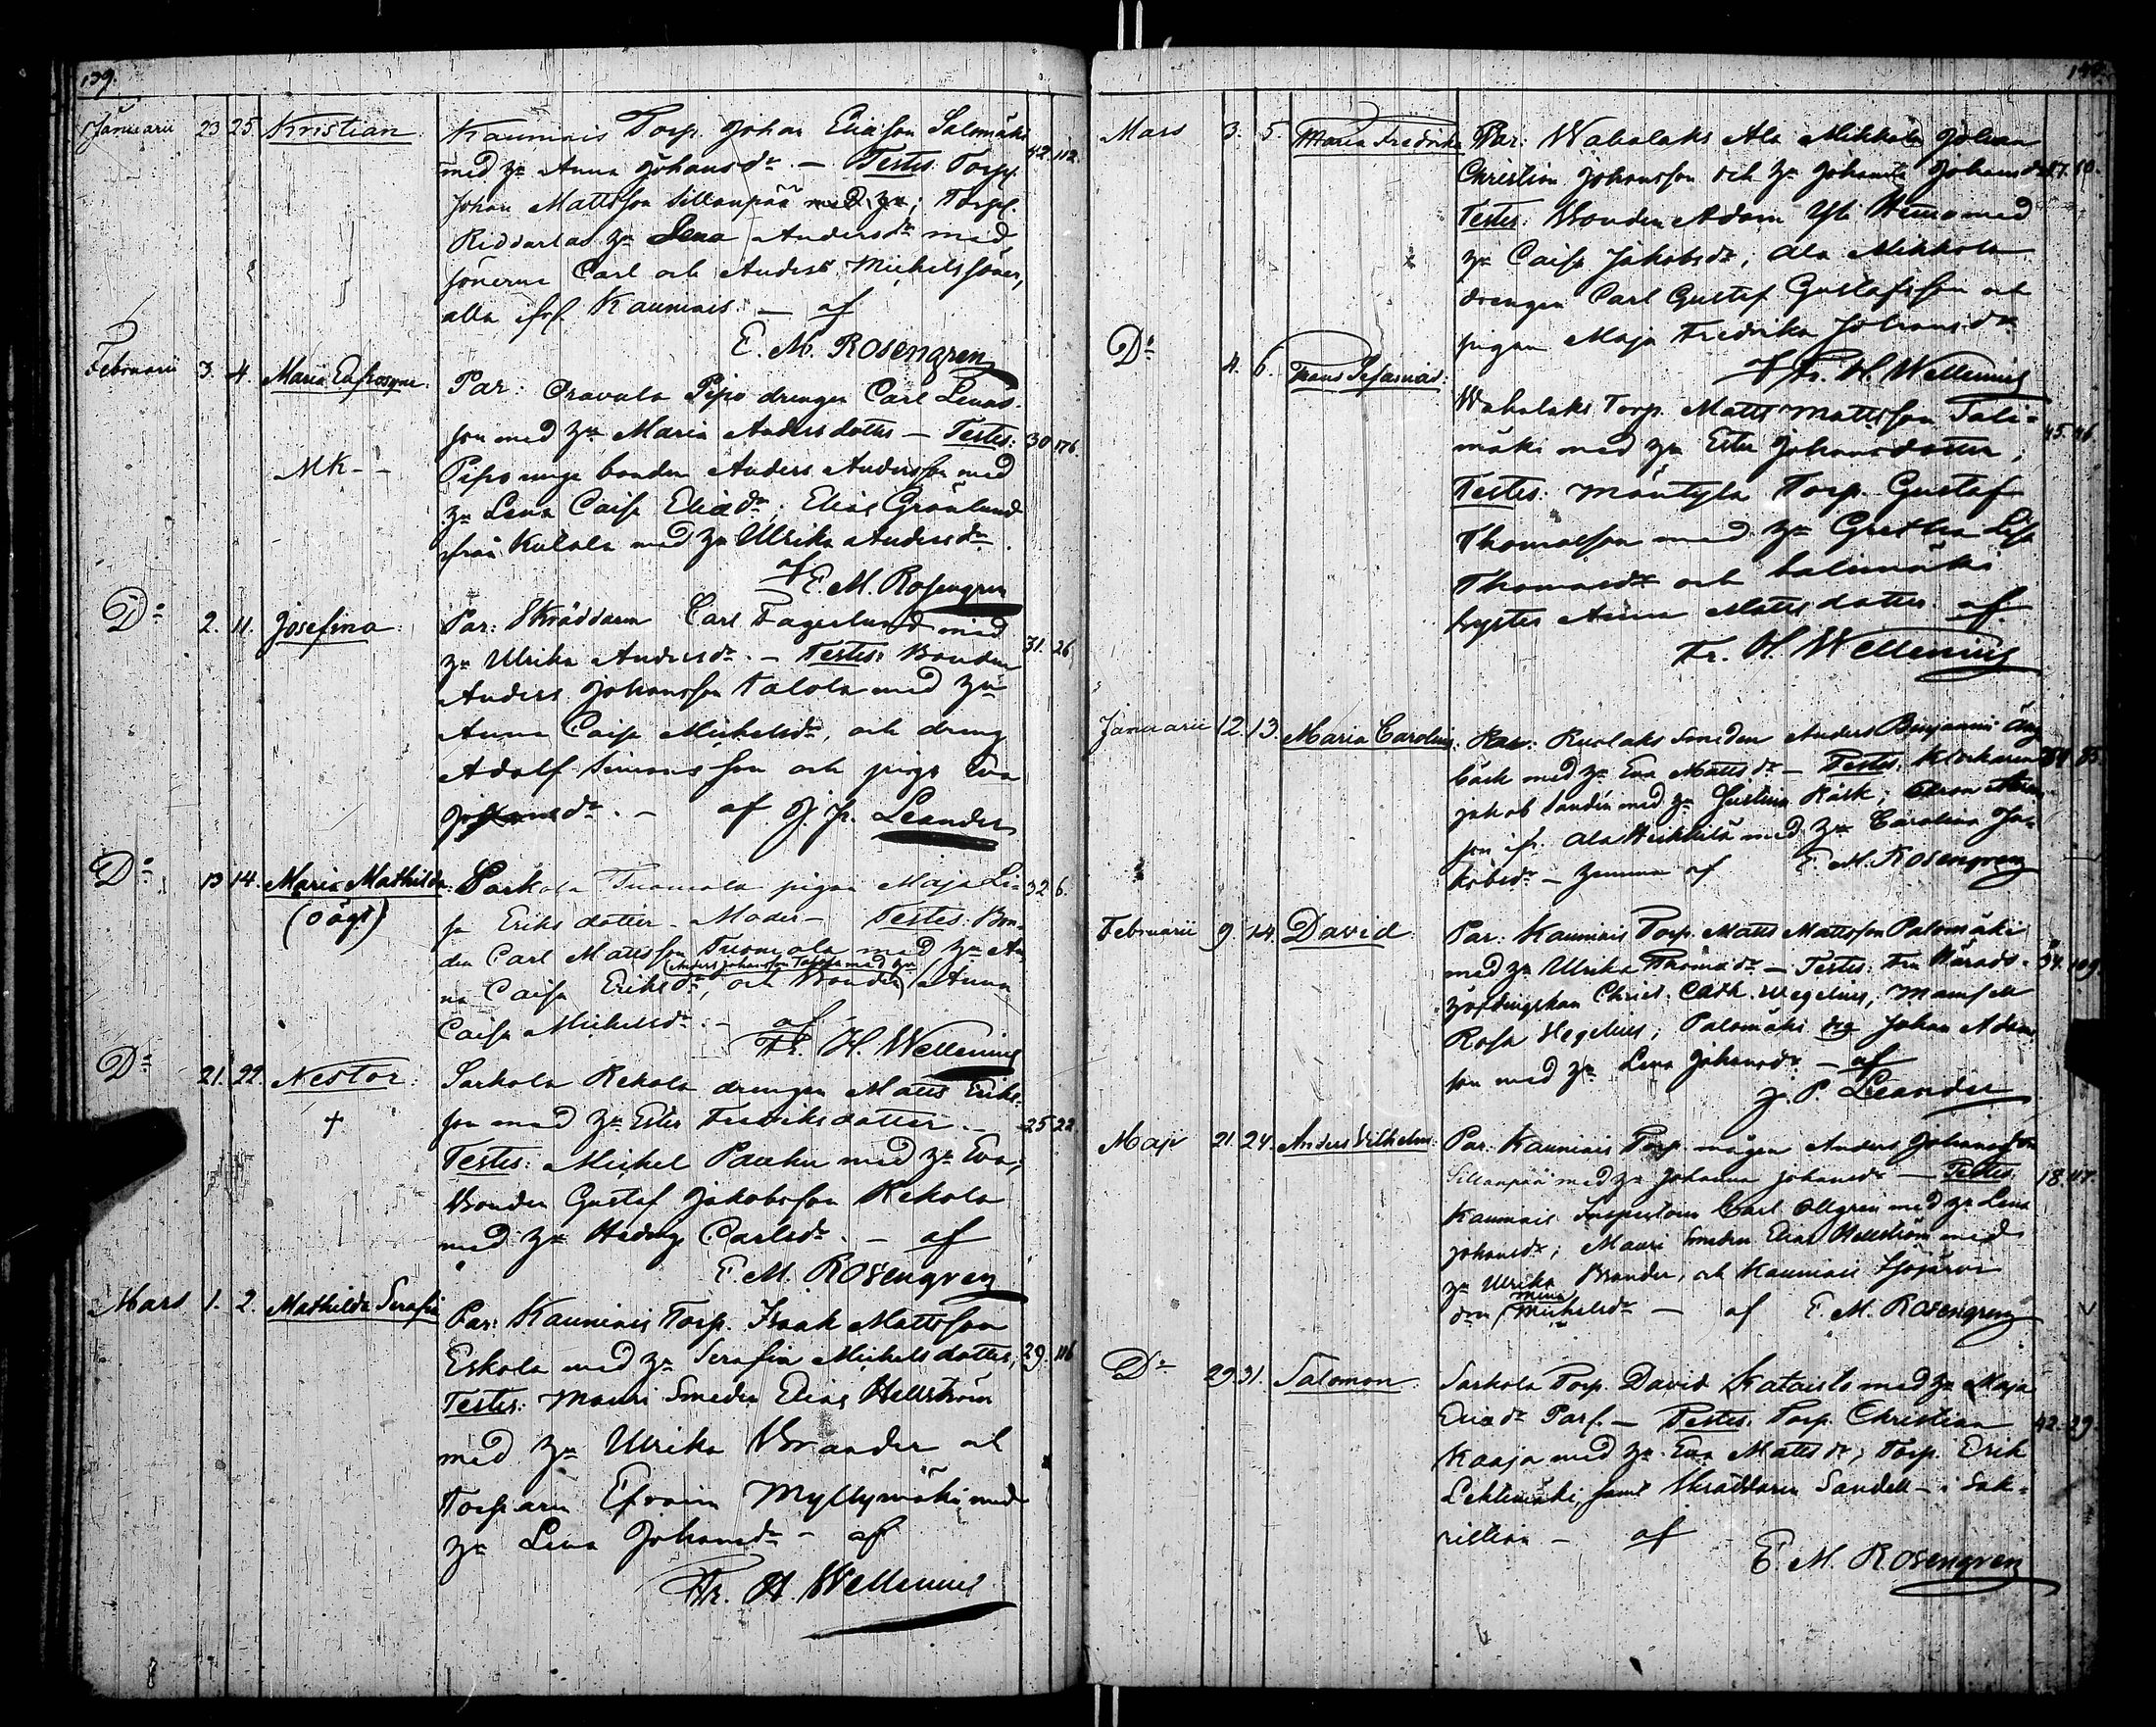 139.
Januarii 23 25. Kristian. Kaumais Torp. Johan Eliasson Salomäki 42. 112.
med h:u Anna Johansdr. — Testes: Torp.
Johan Mattsson Sillanpää med h:u; Torp.
Riddarla h:u Lena Andersdr med
sönerne Carl och Anders Michelssöner,
alla ifr. Kaumais. — af
E. M. Rosengren
Februarii 3. 4. Maria Eufrosyne. Par: Oravala Pipo drengen Carl Lenas-
son med h:u Maria Andersdotter — Testes: 30 176.
MK - - Pipo unge bonden Anders Andersson med
h:u Lena Caisa Eliædr; Elias Grönlund
från Kutala med h:u Ulrika Andersdr.
af E. M. Rosengren
Do 2. 11. Josefina. Par: Skräddaren Carl Fagerlund med
h:u Ulrika Andersdr. — Testes: Bonden 31. 26
Anders Johansson Talola med h:u
Anna Caisa Michelsdr, och dreng
Adolf Simonsson och piga Eva
Johansdr. — af J. P. Leander
Do 13 14. Maria Mathilda. Sarkola Tuomola pigan Maja Li- 32 6.
(oägt) sa Eriksdotter — Moder — Testes: Bon-
den Carl Mattsson Tuomola med h:u An-
Anders Johansson Talola med h:u
na Caisa Eriksdr, och Bonden Anna
Caisa Michelsdr. — af
Fr. H. Wellenius
Do 21. 22. Nestor. Sarkola Rekola drengen Matts Eriks-
† son med h:u Ester Fredriksdotter. — 25 22.
Testes: Michel Pauhu med h:u Eva;
Bonden Gustaf Jakobsson Rekola
med h:u Hedvig Carlsdr. — af
E. M. Rosengren
Mars 1. 2. Mathilda Serafia Par: Kaumais Torp. Isaak Mattsson
Eskola med h:u Serafia Michelsdotter; 29. 116
Testes: Mauri Smeden Elias Hellström
med h:u Ulrika Brander och
Torparen Efraim Myllymäki med
h:u Lena Johansdr — af
Fr. H. Wellenius
Mars 3. 5. Maria Fredrika Par: Wahalaks Ala Mikkola Johan
Christian Johansson och h:u Johanna Johansdr 27. 60.
Testes: Bonden Adam Yli Heimo med
h:u Caisa Jakobsdr; Ala Mikkola
drengen Carl Gustaf Gustafsson och
pigan Maja Fredrika Johansdr
af Fr. H. Wellenius
Do 4. 6. Frans
Wahalaks Torp. Matts Mattsson Tali- 45. 46.
mäki med h:u Ester Johansdotter;
Testes: Mäntylä Torp. Gustaf
Thomasson med h:u Gretha Lisa
Thomasdr och Talimäki
syster Anna Mattsdotter. af
Fr. H. Wellenius
Januarii 12. 13. Maria Carolina. Par: Ruolaks Smeden Anders Benjamin Äng-
bäck med h:u Eva Mattsdr — Testes: Klockaren 85.
Jakob Sandén med h:u Justina Räsk;
son ifr. Ala Heikkilä med h:u Carolina Ja-
kobsdr — hemma af E. M. Rosengren
Februarii 9. 14. David. Par: Kaumais Torp. Matts Mattsson Palomäki
med h:u Ulrika Thomædr — Testes: Fru Härads- 34. 109.
höfdingskan Christ. Cath. Wegelius, Mamsell
Rosa Wegelius; Palomäki drg Johan Adams-
son med h:u Lena Johansdr — af
J. P. Leander
Maji 21. 24. Anders Vilhelm. Par. Kaumais Torp. mågen Anders Johansson
Sillanpää med h:u Johanna Johansdr — Testes: 18. 47.
Kaumais Inspectorn Carl Ollgren med h:u Lena
Johansdr; Mauri Smeden Elias Hellström med
h:u Ulrika Brander, och Kaumais
Mina
Michelsdr — af E. M. Rosengren
Do 29. 31. Salomon. Sarkola Torp. David Kataisto med h:u Maja
Eliædr Par. — Testes: Torp. Christian 42. 29.
Kaaja med h:u Eva Mattsdr; Torp. Erik
Lehtimäki, samt Skräddaren Sandell — i Sak-
ristian — af
E. M. Rosengren